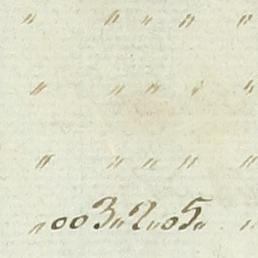 " " " " "
" " " " "
" " " " "
"003"2"05" "